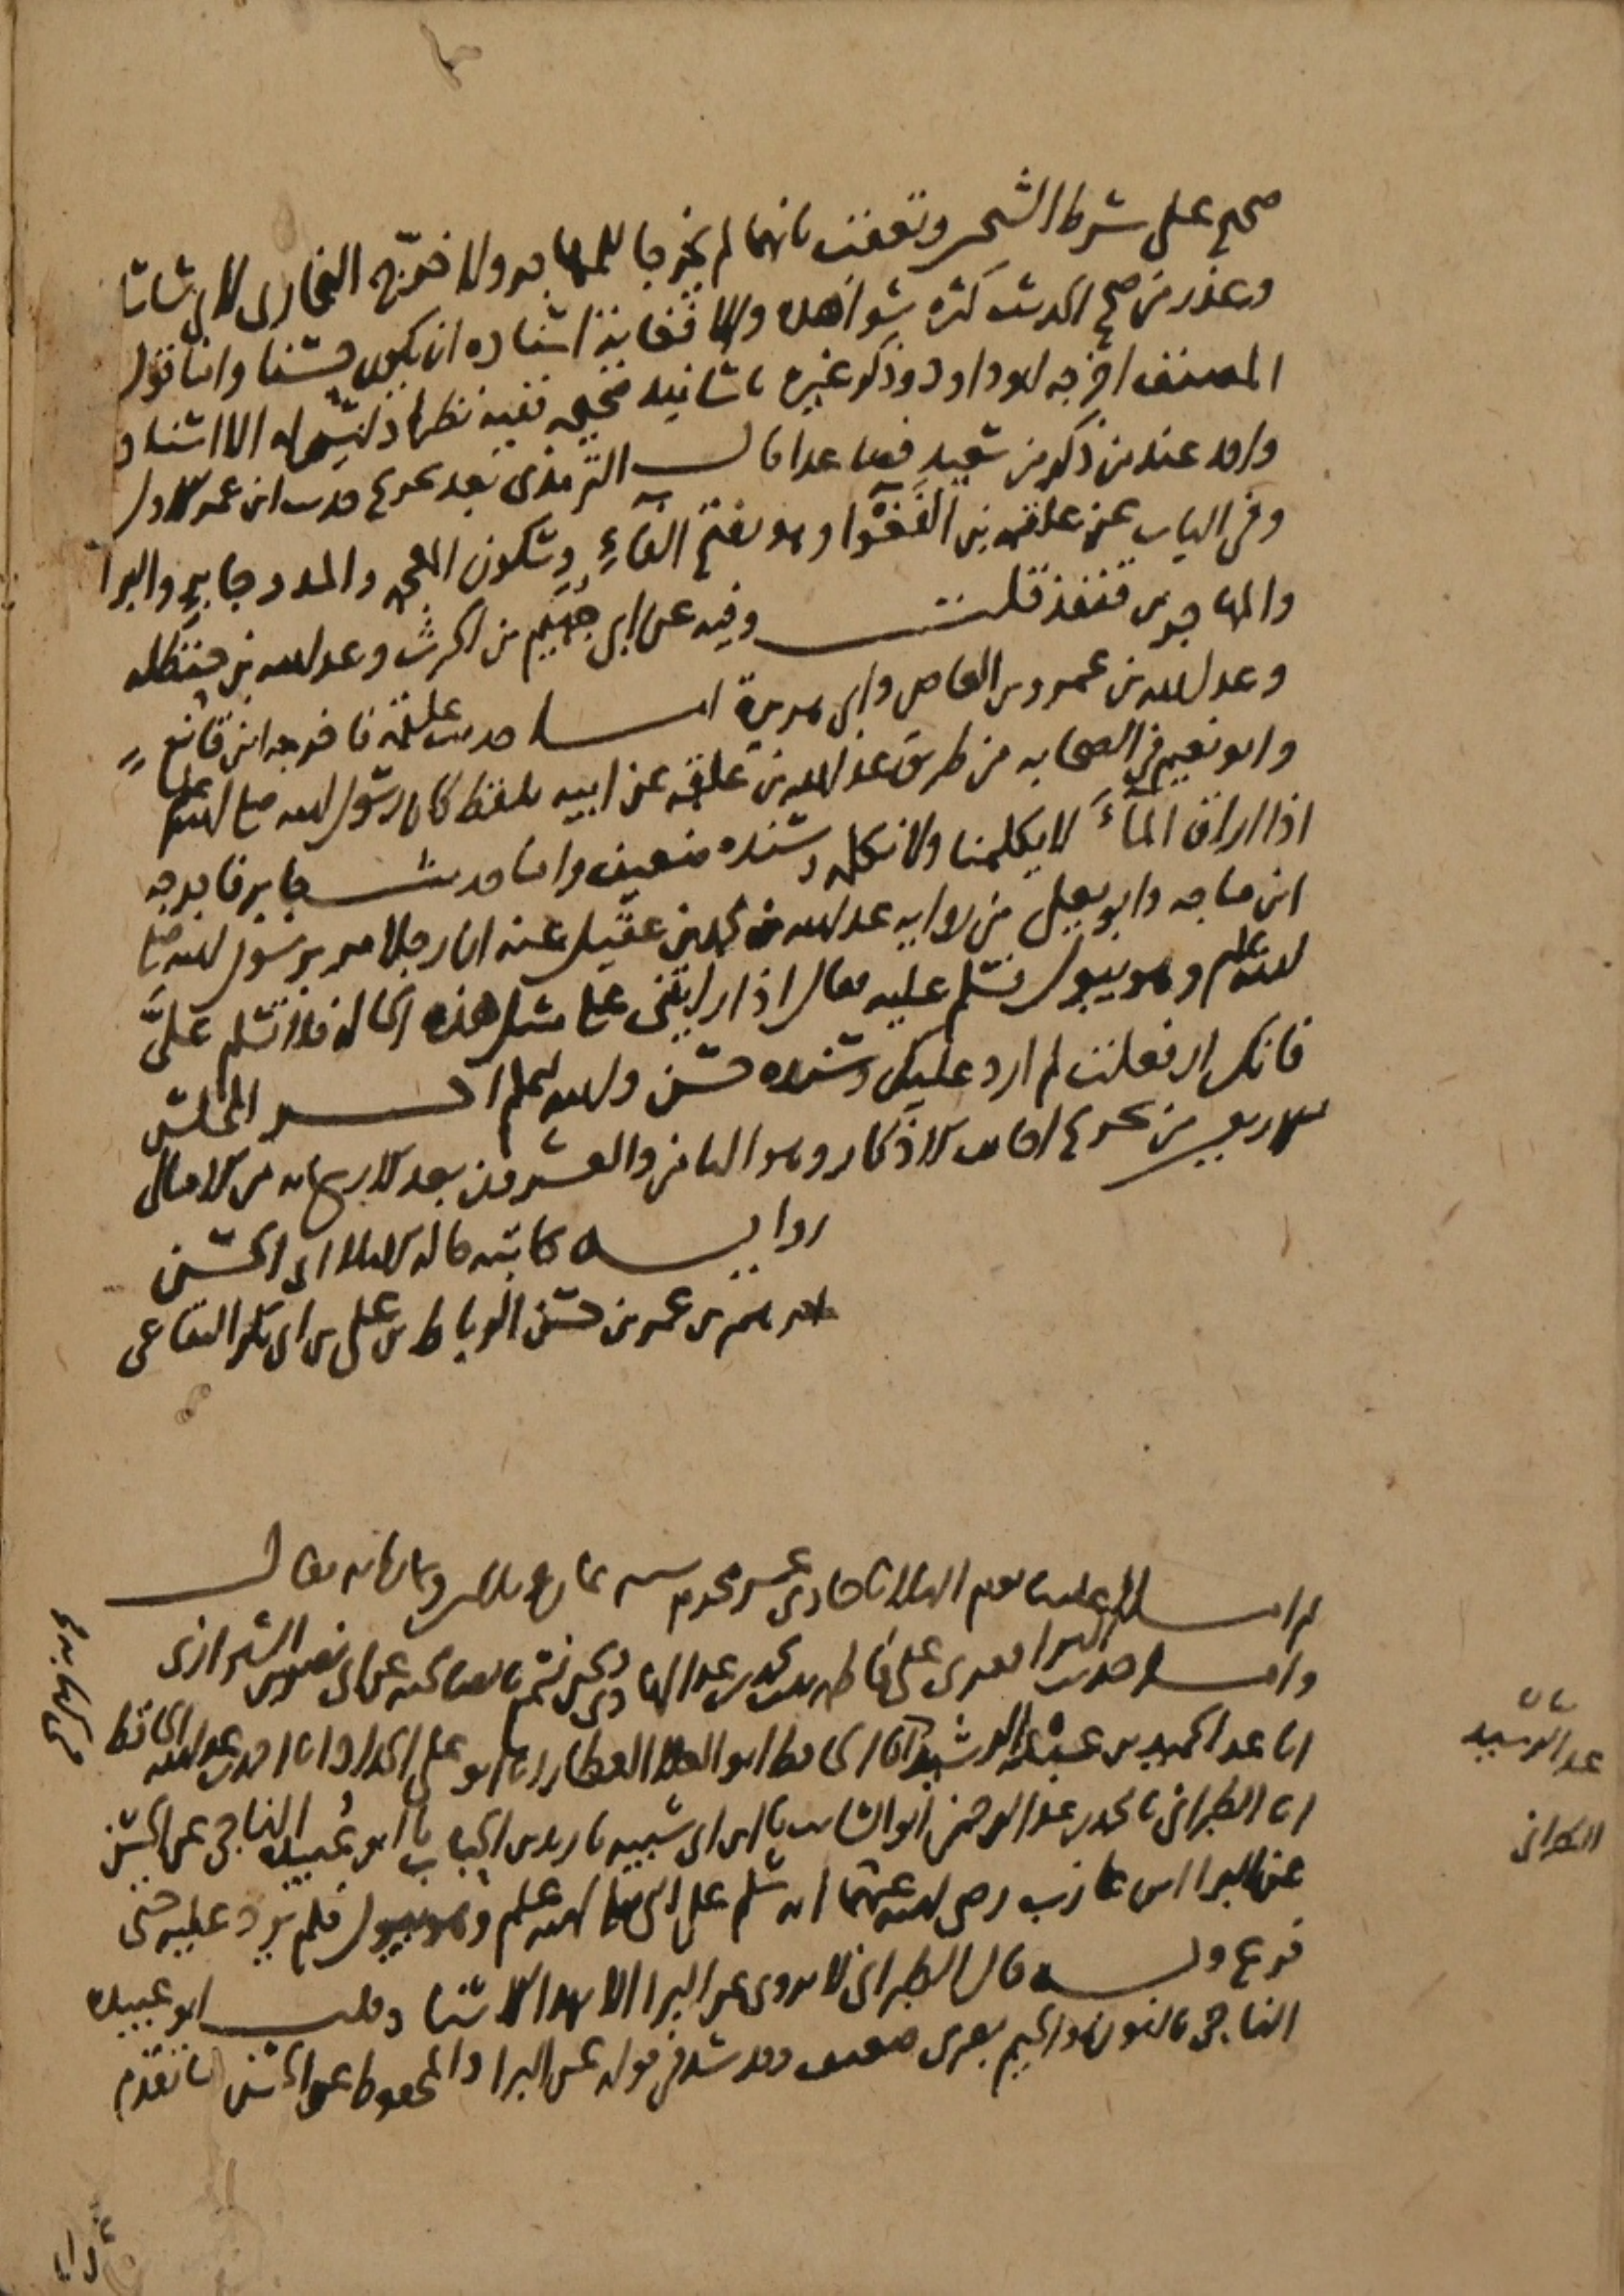 صحيح على شرط الشيخين وتعقب بانهما لم يخرجا للمهاجر ولا خرج البخارى لابى ساسان
وعذر من صحح الحديث كثرة شواهده والا فغاية اسناده ان يكون حسنا واما قول
المصنف اخرجه ابو داود وذكر غيره باسانيد صحيحه ففيه نظر اذ ليس له الا اسناد
واحد عند من ذكر من سعيد فصاعدا قال الترمذى بعد تخريج حديث ابن عمر الاول
وفى الباب عن علقمه بن الفغوا وهو بفتح الفاء وسكون المعجمه والمد وجابر والبرا
والمهاجر بن قنفذ قلت وفيه عن ابى جهيم بن الحرث وعبد الله بن حنظله
وعبد الله بن عمرو بن العاص وابى هريرة اما حديث علقمة فاخرجه ابن قانع
وابو نعيم فى الصحابه من طريق عبد الله بن علقمه عن ابيه بلفظ كان رسول الله صلى الله عليه وسلم
اذا اراق الماء لا يكلمنا ولا نكلمه وسنده ضعيف واما حديث جابر فاخرجه
ابن ماجه وابو يعلى من رواية عبد الله بن محمد بن عقيل عنه ان رجلا مر برسول الله صلى
الله عليه وسلم وهو يبول فسلم عليه فقال اذا رايتنى على مثل هذه الحاله فلا تسلم على
فانك ان فعلت لم ارد عليك وسنده حسن والله اعلم اخر المجلس
الاربعين من تخريج احاديث الاذكار وهو الثامن والعشرون بعد الاربعمائه من الامالى
رواية كاتبه قاله الاملا ابى الحسن
ابرهيم بن عمر بن حسن الرباط بن على بن ابى بكر البقاعى
ثم املى علينا يوم الثلاثا حادى عشر محرم سنه سبع وثلاثين وثمانمائه فقال
واما حديث البرا فقرى على فاطمه بنت محمد بن عبد الهادى ونحن نسمع بالصالحيه عن ابى نصر بن الشيرازى
انا عبد الحميد بن عبد الرشيد انا الحافظ ابو العلا العطار انا ابو على الحداد انا احمد بن عبد الله الحافظ
انا الطبرانى نا محمد بن عبد الرحمن ابو السائب نا ابن ابى شيبه نا زيد بن الحباب نا ابو عبيده الناجى عن الحسن
عن البرا ابن عازب رضى الله عنهما انه سلم على النبى صلى الله عليه وسلم وهو يبول فلم يرد عليه حتى
فرغ وبه قال الطبرانى لا يروى عن البرا الا بهذا الاسناد قلت ابو عبيده
الناجى بالنون والجيم بصرى ضعيف وقد شذ فى قوله عن البرا والمحفوظ عن الحسن ما تقدم
عبد الرشيد
الطبرانى